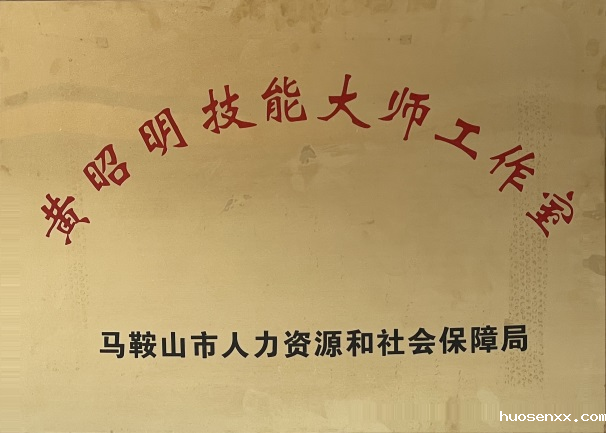 黄昭明技能大师工作室
马鞍山市人力资源和社会保障局
huosenxx.com